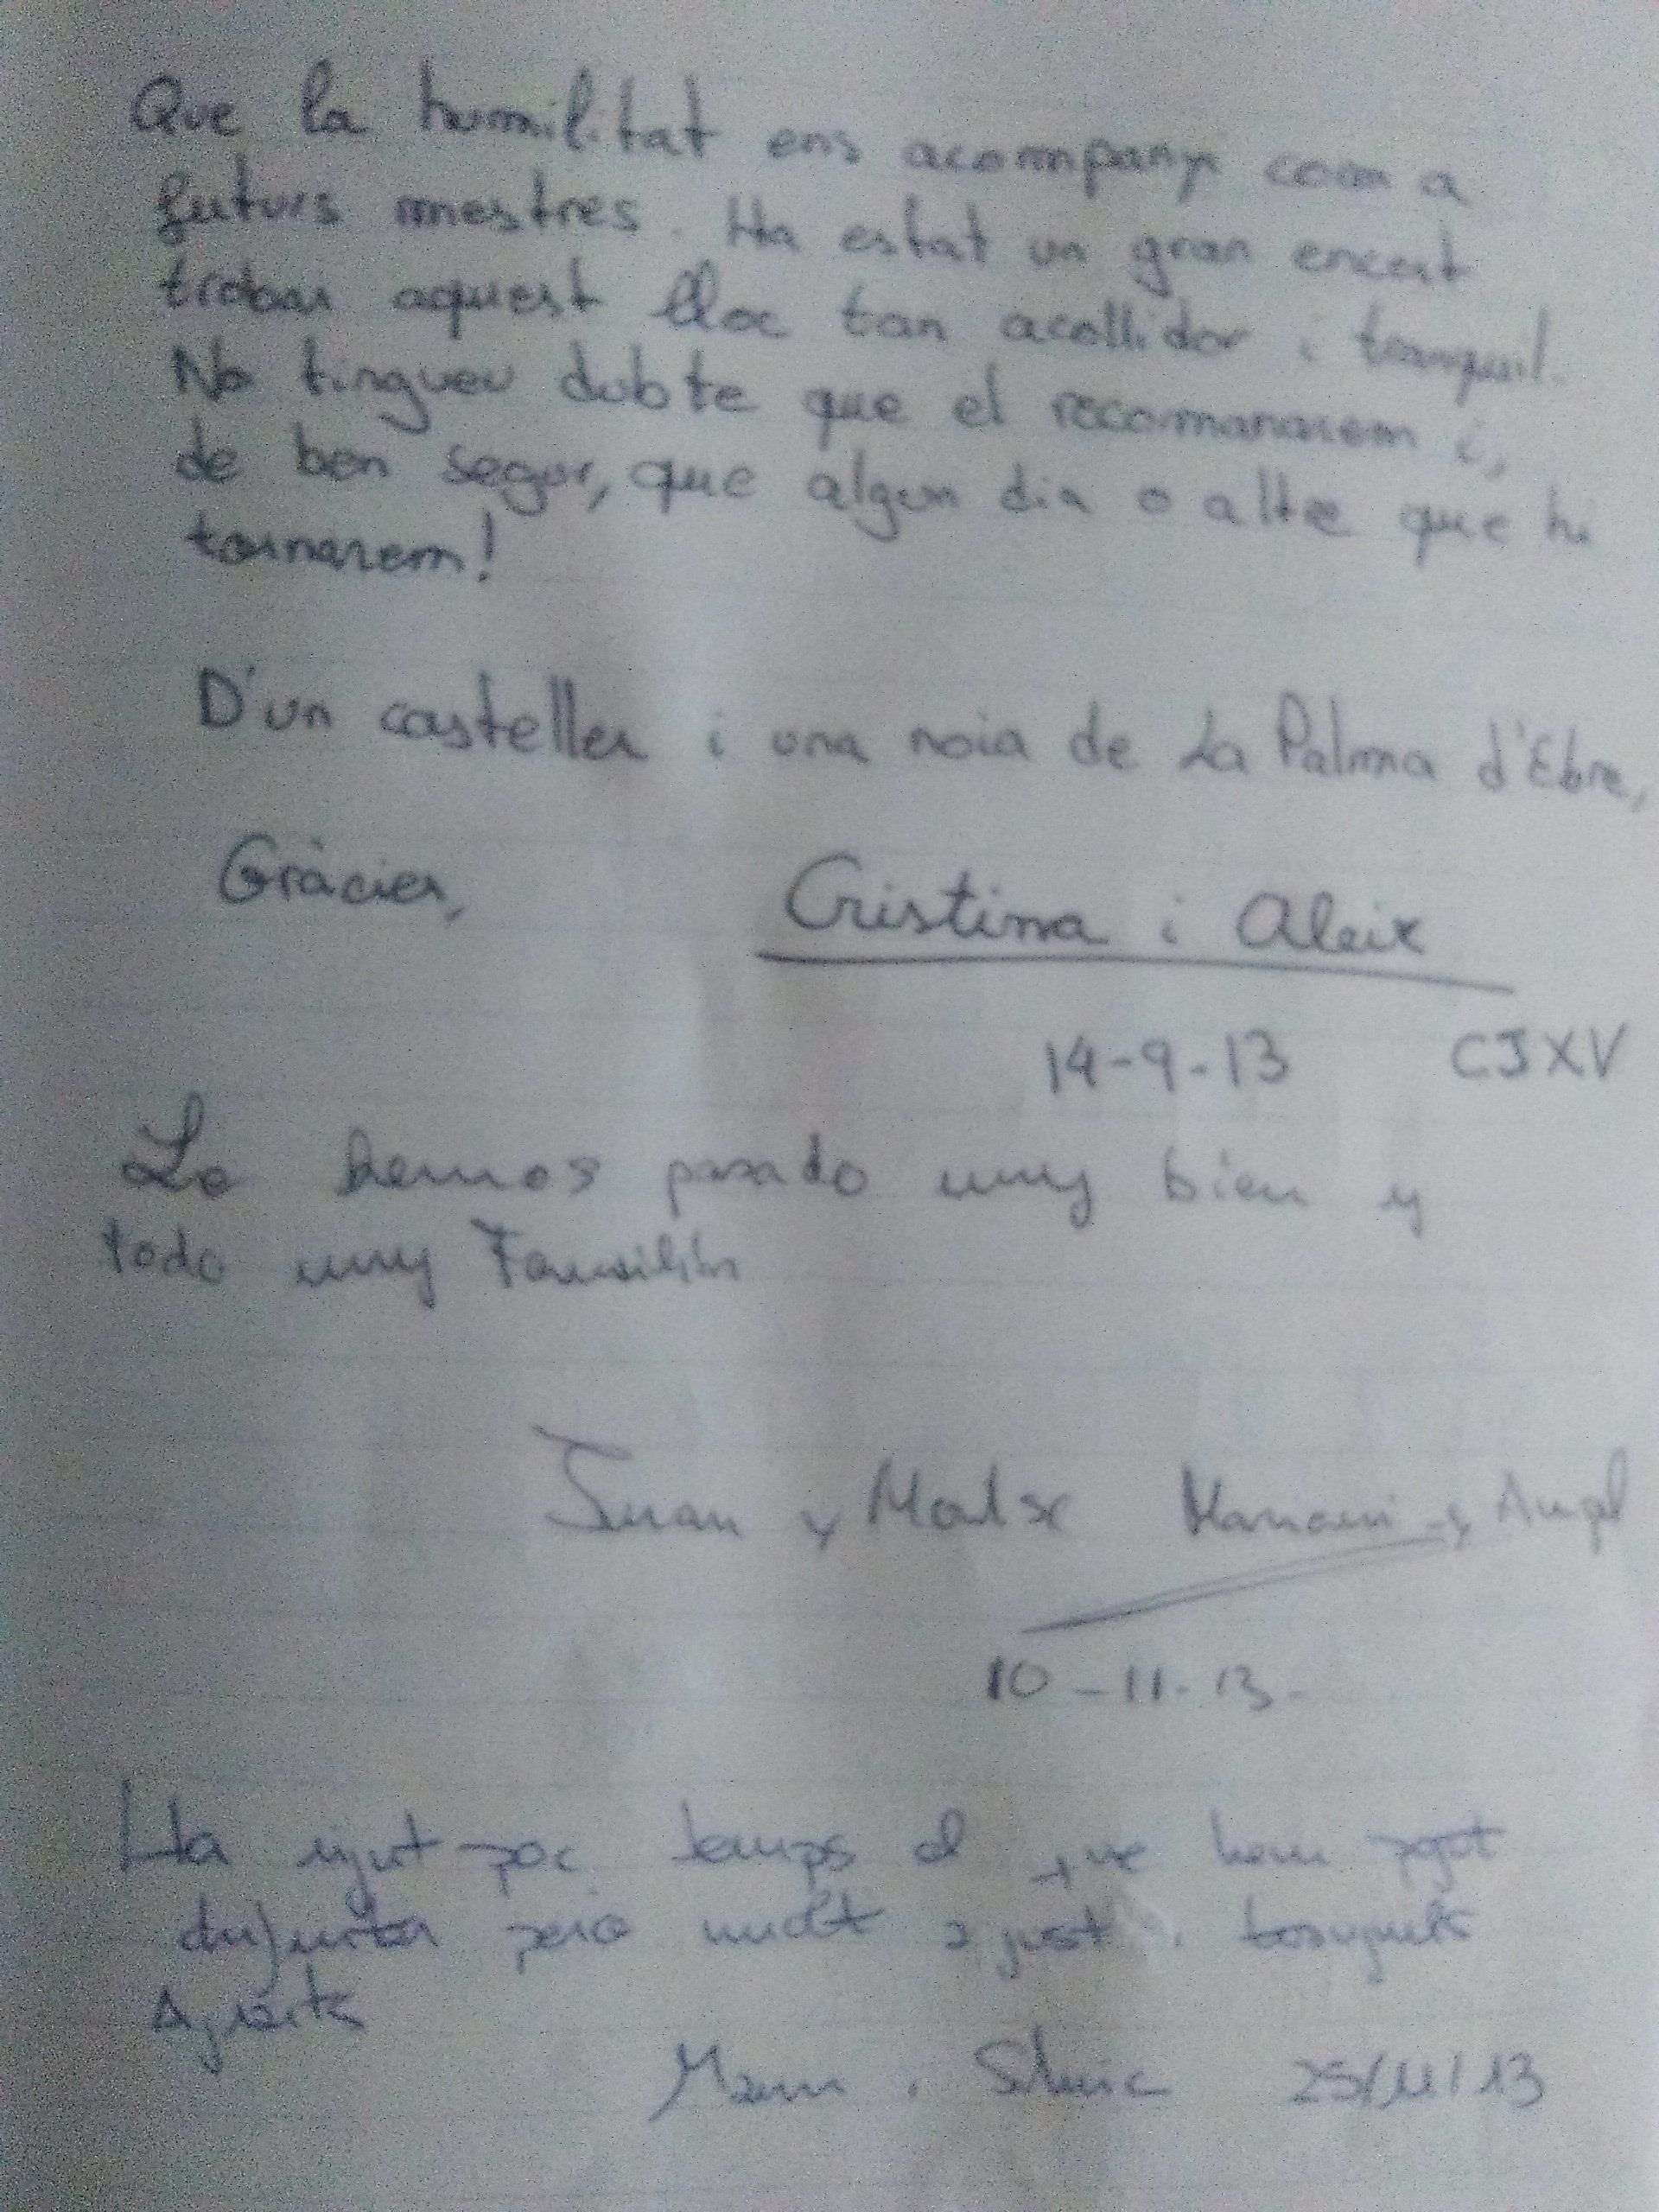 Que la humilitat ens acompanyi com a
futurs mestres. Ha estat un gran encert
trobar aquest lloc tan acollidor i tranquil.
No tingueu dubte que el recomanarem i,
de ben segur, que algun dia o altre que hi
tornarem!
D'un casteller i una noia de La Palma d'Ebre,
Gràcies,
Cristina i Aleix
14-9-13 CJXV
Lo hemos pasado muy bien y
todo muy Familiar
Juan y Montse y Angel
10-11-13-
Ha sigut poc temps el que hem pogut
disfrutar però molt a gust i tranquils
25/11/13